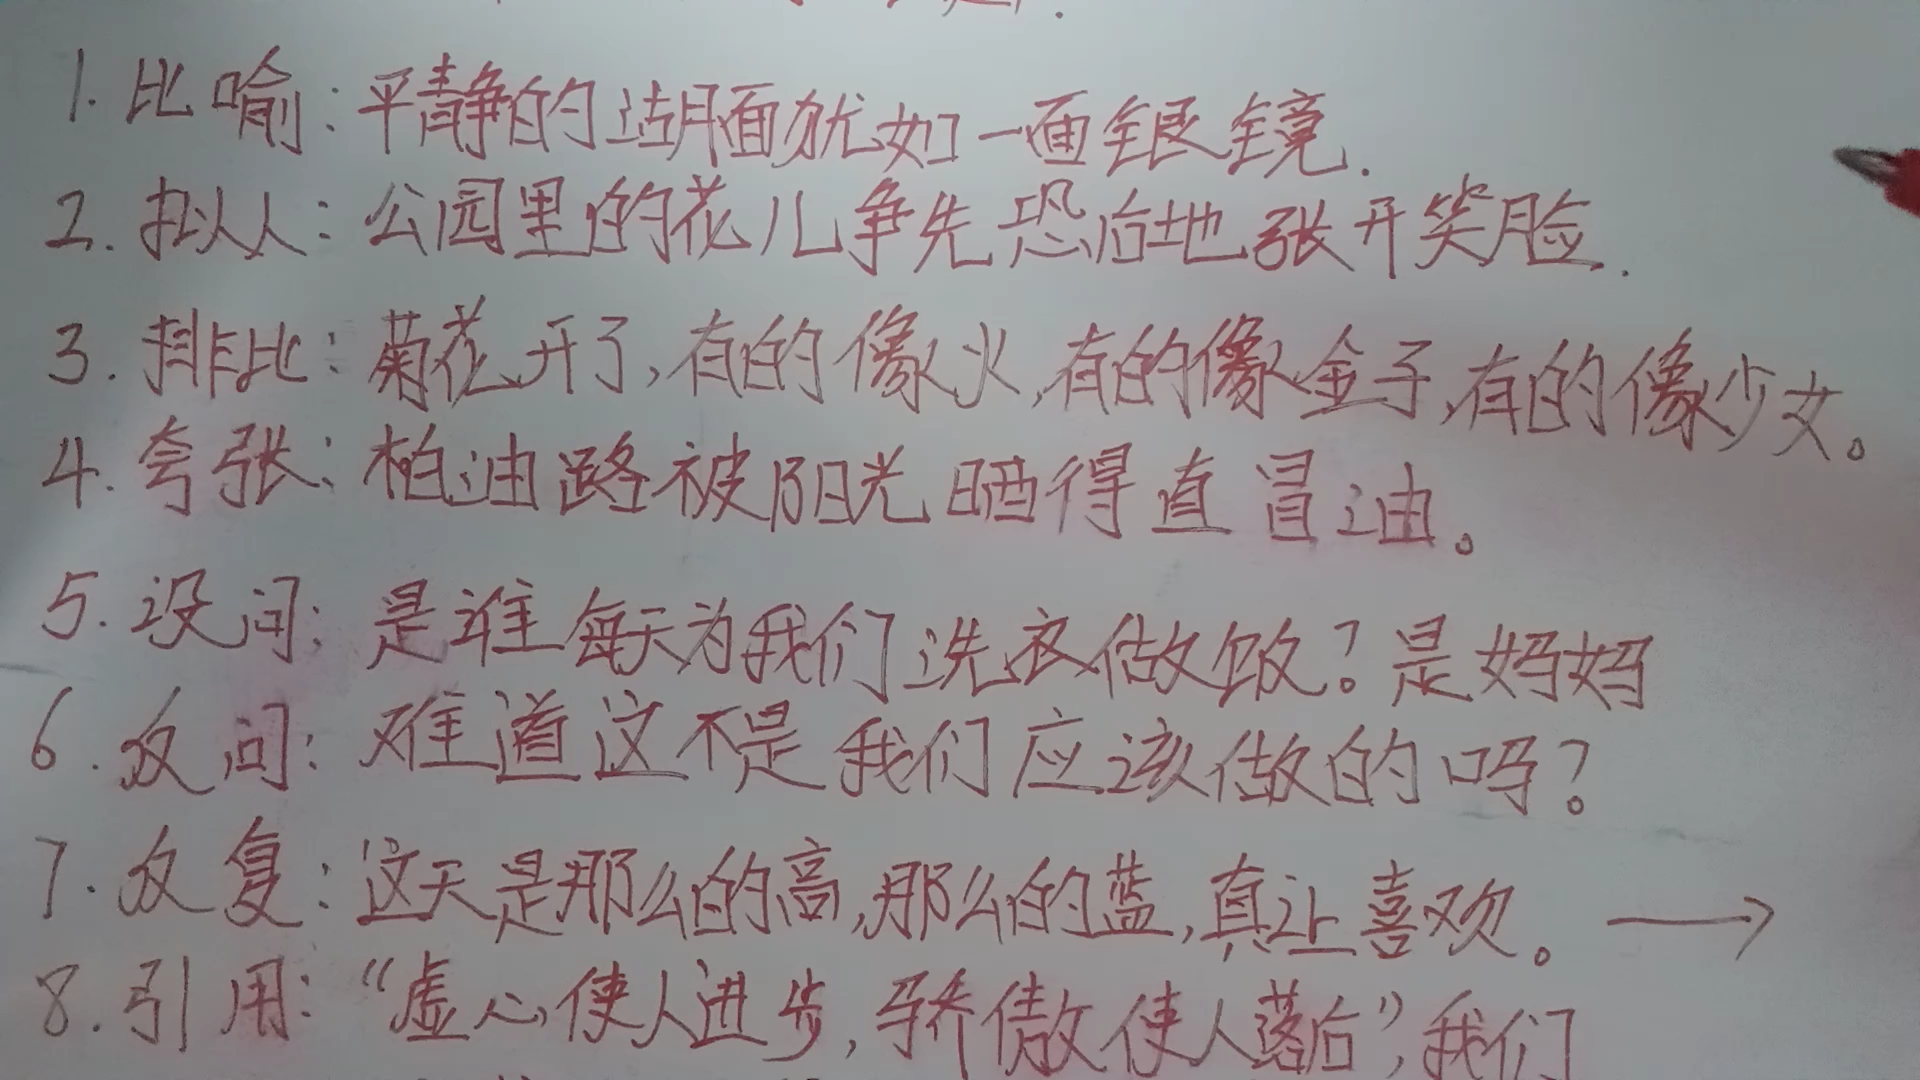 1. 比喻: 平静的湖面犹如一面银镜.
2. 拟人: 公园里的花儿争先恐后地张开笑脸.
3. 排比: 菊花开了,有的像火,有的像金子,有的像少女。
4. 夸张: 柏油路被阳光晒得直冒油。
5. 设问: 是谁每天为我们洗衣做饭?是妈妈
6. 反问: 难道这不是我们应该做的吗?
7. 反复: 这天是那么的高,那么的蓝,真让喜欢。→
8. 引用: “虚心使人进步,骄傲使人落后”,我们